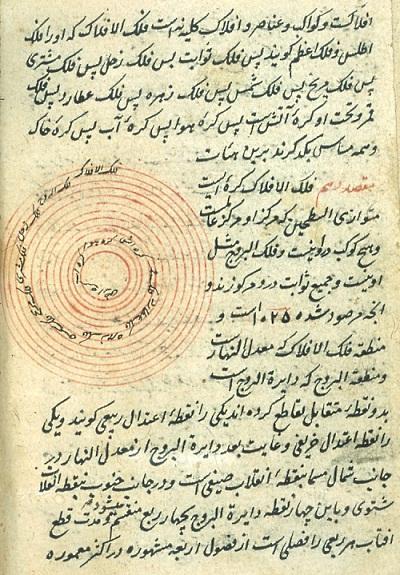 افلاکست و کواکب و عناصر و افلاک کلیه نه است فلک الافلاک که او را فلک
اطلس و فلک اعظم گویند پس فلک ثوابت پس فلک زحل پس فلک مشتری
پس فلک مریخ پس فلک شمس پس فلک زهره پس فلک عطارد پس فلک
قمر و تحت او کرهٔ آتش است پس کرهٔ هوا پس کرهٔ آب پس کرهٔ خاک
و همه مماس یکدیگرند برین هیئات
مقصد فلک الافلاک کره است
متوازی السطحین که مرکز او مرکز عالمست
و هیچ کوکب درو نیست و فلک البروج مثل
اوست و جمیع ثوابت درو مرکوزند و
انچه مرصود شده ۱۰۲۵ است و
منطقه فلک الافلاک که معدل النهار است
و منطقة البروج که دایرة البروج است
بدو نقطهٔ متقابل تقاطع کرده اند یکی را نقطهٔ اعتدال ربیعی گویند و یکی
را نقطهٔ اعتدال خریفی و غایت بعد دایرة البروج از معدل النهار در
جانب شمال مسما بنقطهٔ انقلاب صیفی است و در جانب جنوب بنقطهٔ انقلاب
شتوی و باین چهار نقطه دایرة البروج بچهار ربع منقسم میشود و مدت قطع
آفتاب هر ربعی را فصلی است از فصول اربعهٔ مشهوره در اکثر معموره
فلک الافلاک
فلک البروج
فلک زحل
فلک مشتری
فلک مریخ
فلک شمس
فلک زهره
فلک عطارد
فلک قمر
کره آتش
کره هوا
کره آب